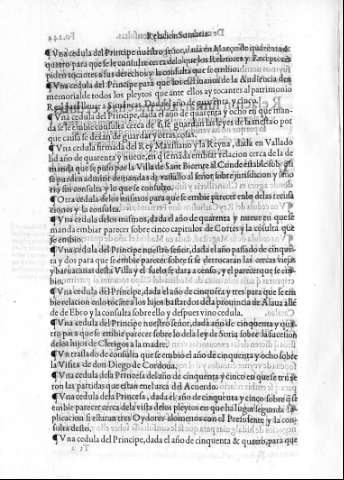 Fo.244 Relacion Sumaria
¶ Vna cedula del Principe nuestro señor, dada en Março de quarenta &
quatro para que se le consulte cerca de lo que los Relatores y Receptores
piden tocantes a sus derechos y la consulta que se embio.
¶ Vna cedula del Principe para que los escriuanos de la Audiencia den
memoria de todos los pleytos que ante ellos ay tocantes al patrimonio
Real para lleuar a Simancas. Dada el año de quarenta y cinco.
¶ Vna cedula del Principe, dada el año de quarenta y ocho en que man
da se le embie consulta cerca de si se guardan las leyes de
que causa se dexan de guardar y otras cosas.
¶ Vna cedula firmada del Rey Maximiliano y la Reyna, dada en Vallado
lid año de quarenta y nueue, en que manda embiar relacion cerca de la de
manda que se puso por la Villa de Sant Bicente al Conde sobre si
se pueden admitir demandas de vasallo al señor sobre jurisdicion y seño
rio sin consulta y lo que se consulto.
¶ Otra cedula de los mismos para que se embie parecer sobre las recusa
ciones y la consulta.
¶ Vna cedula de los mismos, dada el año de quarenta y nueue en que se
manda embiar parecer sobre cinco capitulos de Cortes y la cõsulta que
se embio.
¶ Vna cedula del Principe nuestro señor, dada el año pasado de cinquẽ
ta y dos para que se embie parecer sobre si se derrocaran las cercas viejas
y barbacanas desta Villa y el suelo se dara a censo, y el parecer que se em
bio.
¶ Vna cedula del Principe, dada el año de cinquẽta y tres para que se em
bie relacion en lo tocante a los hijos bastardos de la prouincia de Alaua allẽ
de de Ebro y la consulta sobre ello y despues vino cedula.
¶ Vna cedula del Principe nuestro señor, dada año de cinquenta y qua
tro para que se embie parecer sobre lo de la ley de Soria sobre la sucession
de los hijos de Clerigos a la madre.
¶ Vn traslado de consulta que se embio el año de cinquenta y ocho sobre
la Visita de don Diego de Cordoua.
¶ Vna cedula de la Princesa del año de cinquenta y cinco en que se
ron las partidas que estan en el arca del Acuerdo.
¶ Vna cedula de la Princesa, dada el año de cinquenta y cinco sobre q̃ se
embie parecer cerca de la vista de los pleytos en que ha lugar segunda su
plicacion si estaran tres Oydores a lo menos con el Presidente y la con
sulta desto.
¶ Vna cedula del Principe, dada el año de cinquenta & quatro, para que